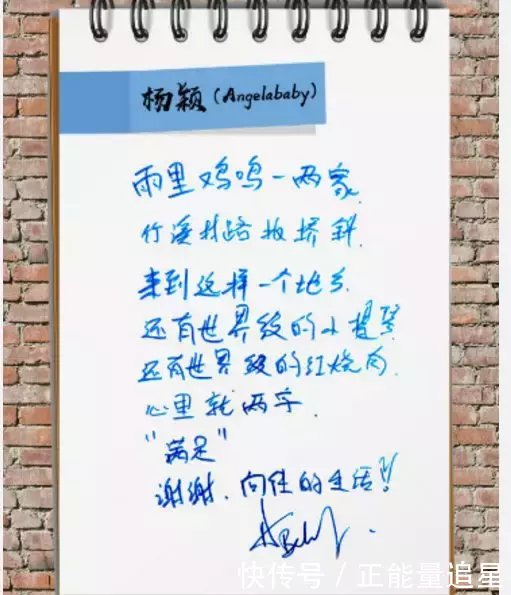 杨颖(Angelababy)
雨里鸡鸣一两家
竹溪村路板桥斜
来到这样一个地方
还有世界级的小提琴
还有世界级的红烧肉.
心里就两字.
“满足”
谢谢.向往的生活!!
快传号/正能量追星